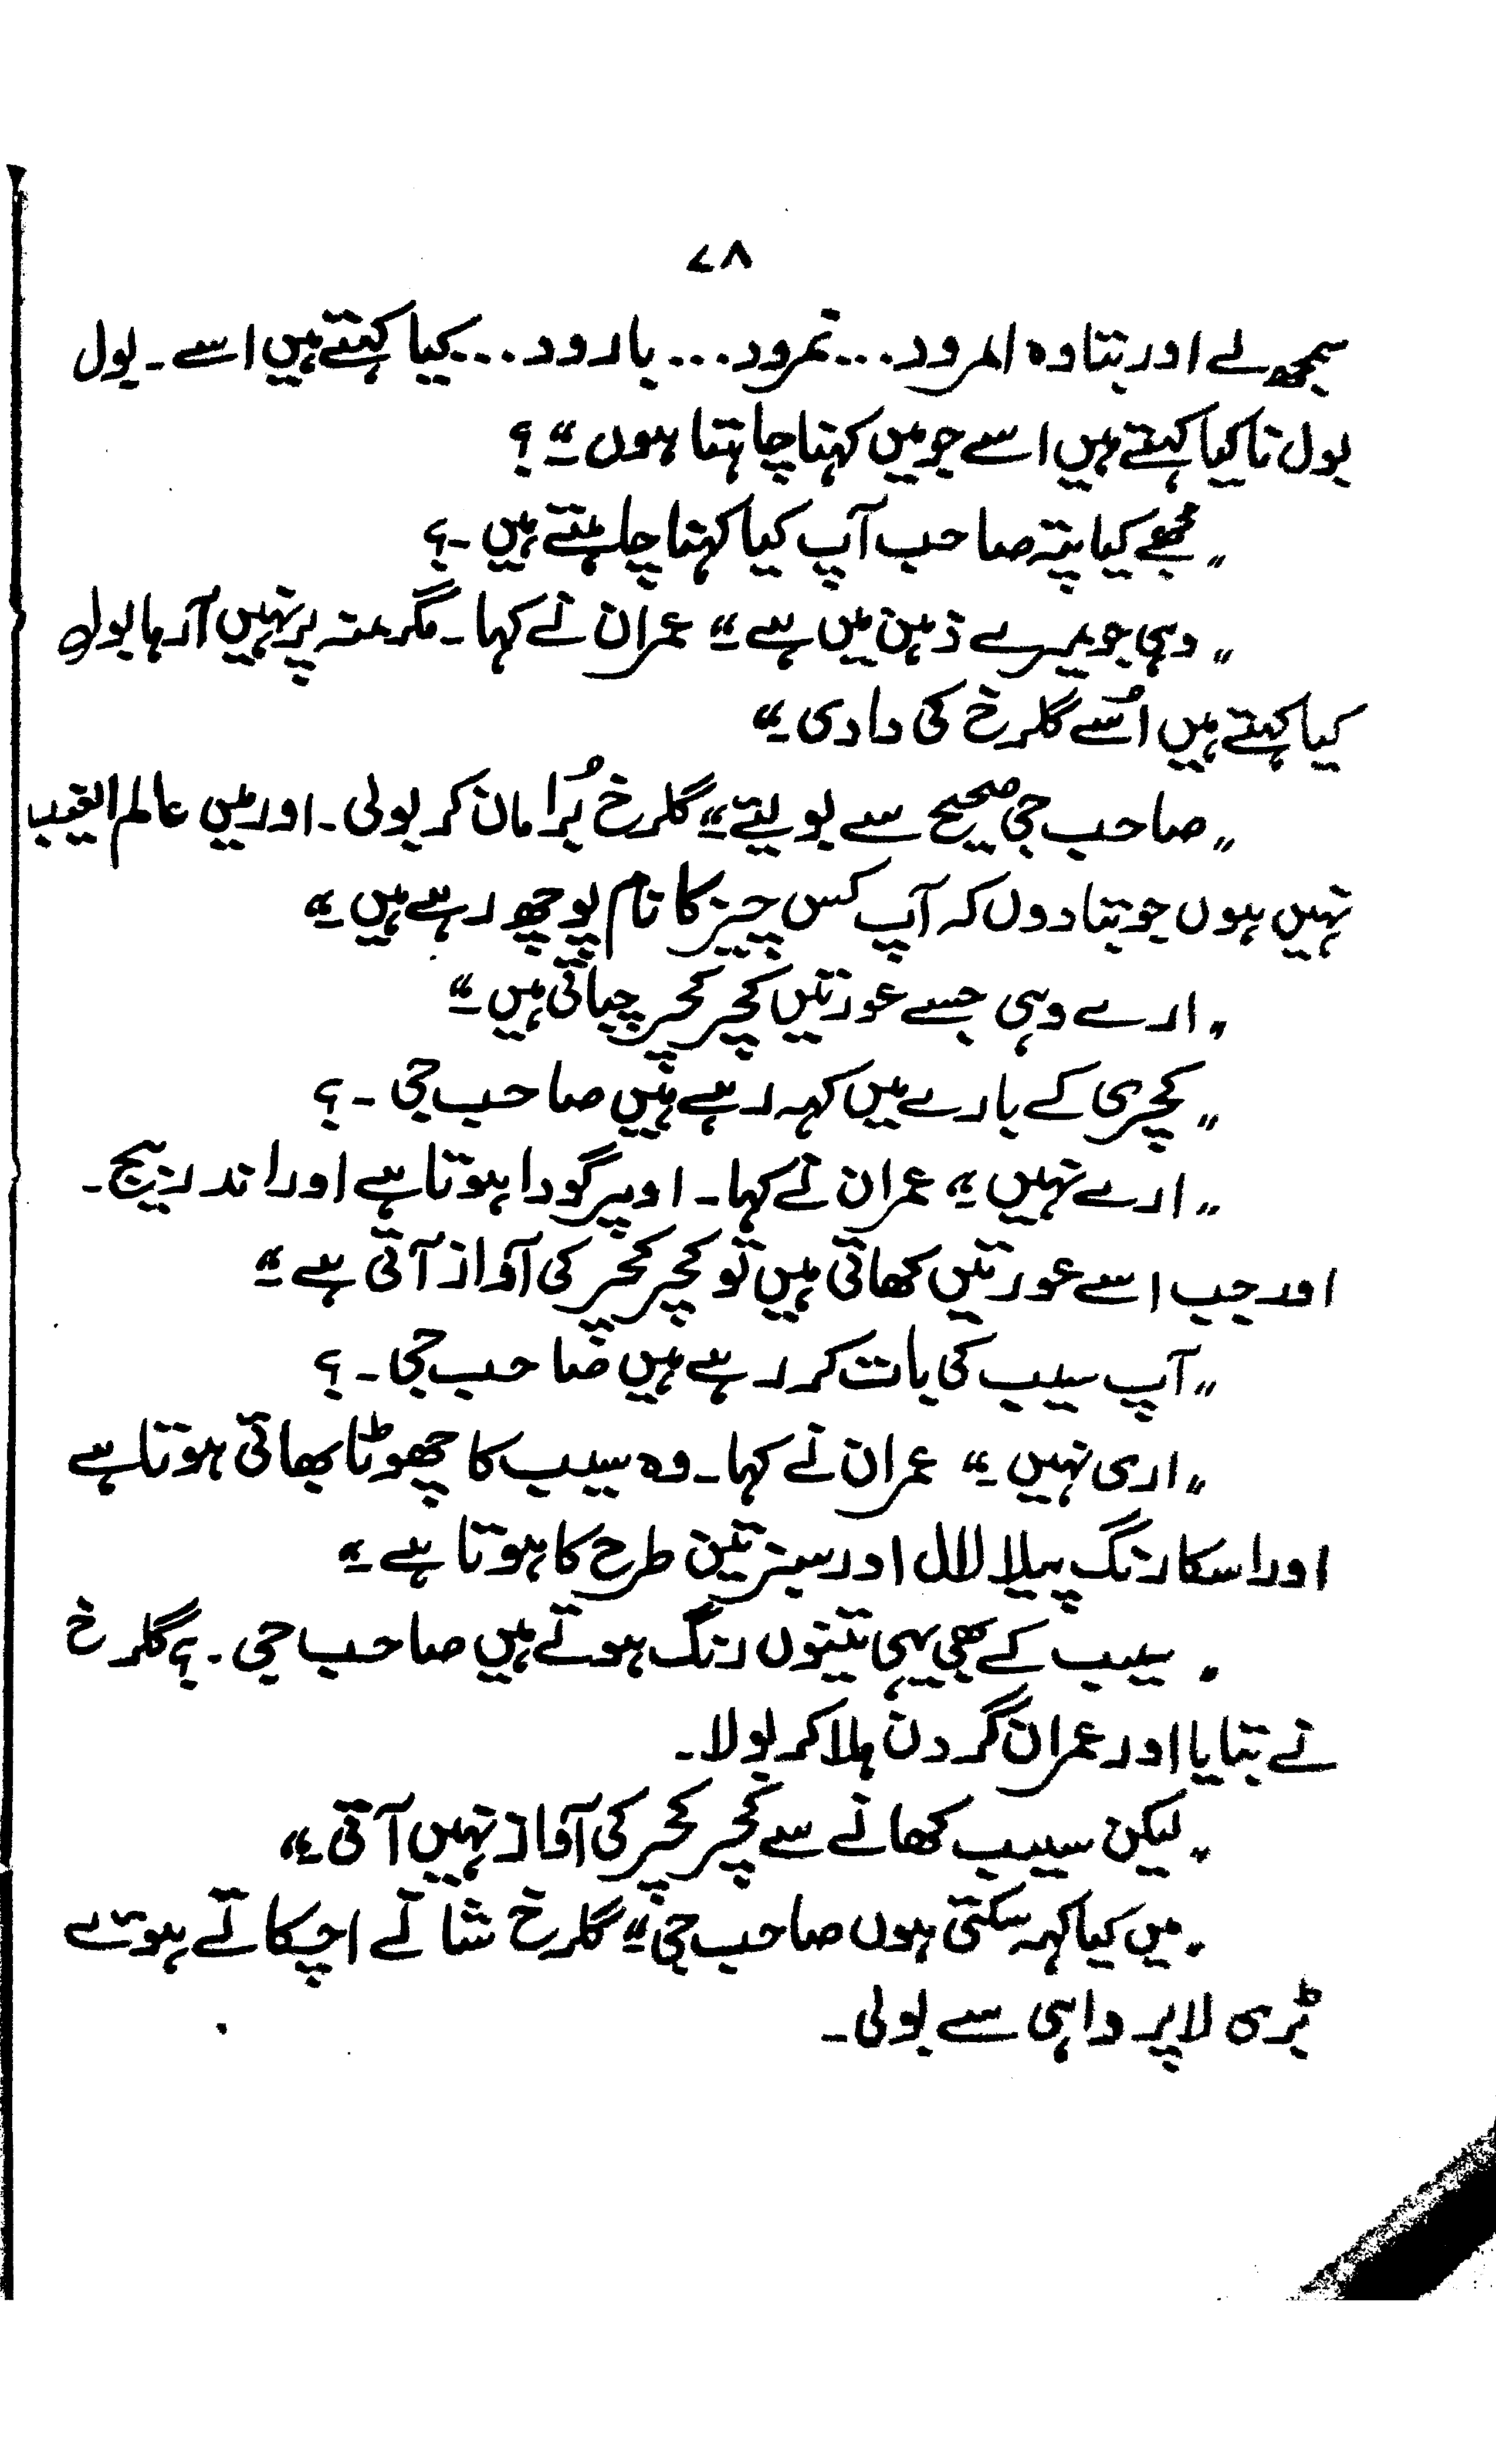 ۷۸
سمجھ لے اور بتا وہ المرود... نمرود... بارود... کیا کہتے ہیں اسے۔ بول
بول نا کیا کہتے ہیں اسے جو میں کہنا چاہتا ہوں"؟
"مجھے کیا پتہ صاحب آپ کیا کہنا چاہتے ہیں۔؟
"وہی جو میرے ذہن میں ہے" عمران نے کہا۔ مگر منہ پر نہیں آرہا بول
کیا کہتے ہیں اُسے گلرخ کی دادی"
"صاحب جی صحیح سے بولیئے" گلرخ بُرا مان کر بولی۔ اور میں عالم الغیب
نہیں ہوں جو بتا دوں کہ آپ کس چیز کا نام پوچھ رہے ہیں"
"ارے وہی جسے عورتیں کچر کچر چباتی ہیں"
"کچری کے بارے میں کہہ رہے ہیں صاحب جی۔؟
"ارے نہیں" عمران نے کہا۔ اوپر گودا ہوتا ہے اور اندر بیج۔
اور جب اسے عورتیں کھاتی ہیں تو کچر کچر کی آواز آتی ہے"
"آپ سیب کی بات کر رہے ہیں صاحب جی۔؟
"اری نہیں" عمران نے کہا۔ وہ سیب کا چھوٹا بھائی ہوتا ہے
اور اسکا رنگ پیلا لال اور سبز تین طرح کا ہوتا ہے"
"سیب کے بھی یہی تینوں رنگ ہوتے ہیں صاحب جی۔؟ گلرخ
نے بتایا اور عمران گردن ہلا کر بولا۔
"لیکن سیب کھانے سے کچر کچر کی آواز نہیں آتی"
"میں کیا کہہ سکتی ہوں صاحب جی" گلرخ شانے اچکاتے ہوئے
بڑی لاپرواہی سے بولی۔